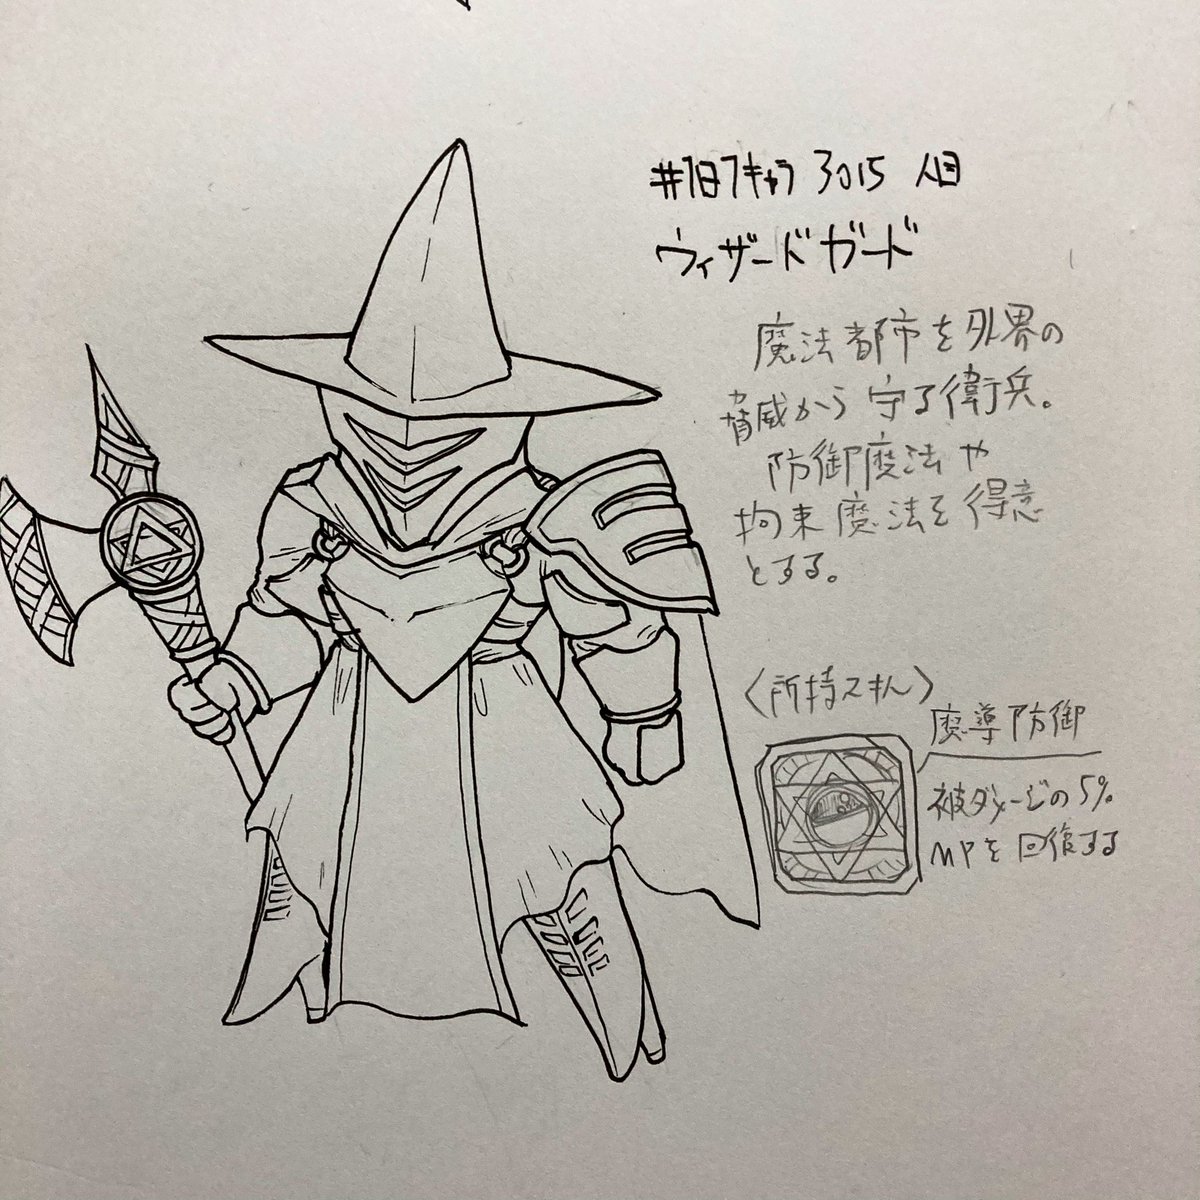 #1日1キャラ 3015 人目
ウィザードガード
魔法都市を外界の
脅威から守る衛兵。
防御魔法や
拘束魔法を得意
とする。
〈所持スキル〉
魔導防御
被ダメージの5%
MPを回復する